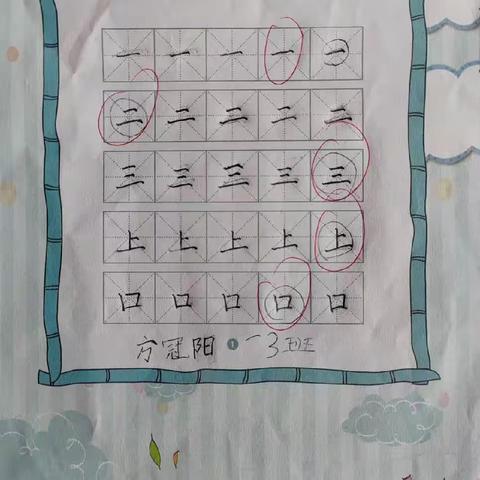 一 一 一 一 一
二 二 二 二 二
三 三 三 三 三
上 上 上 上 上
口 口 口 口 口
方冠阳 1 一3班